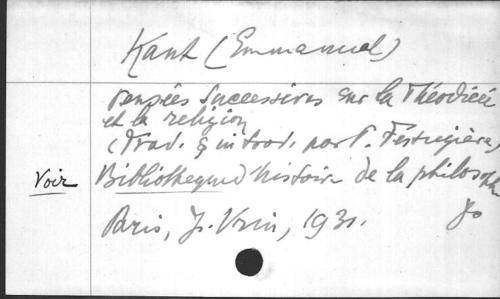 Kant (Emmanuel)
Pensées successives sur la Théodicée
et la religion
(Trad. & introd. par P. Festugière)
Voir Bibliothèque d'histoire de la philosophie
Paris, J. Vrin, 1931. 8o